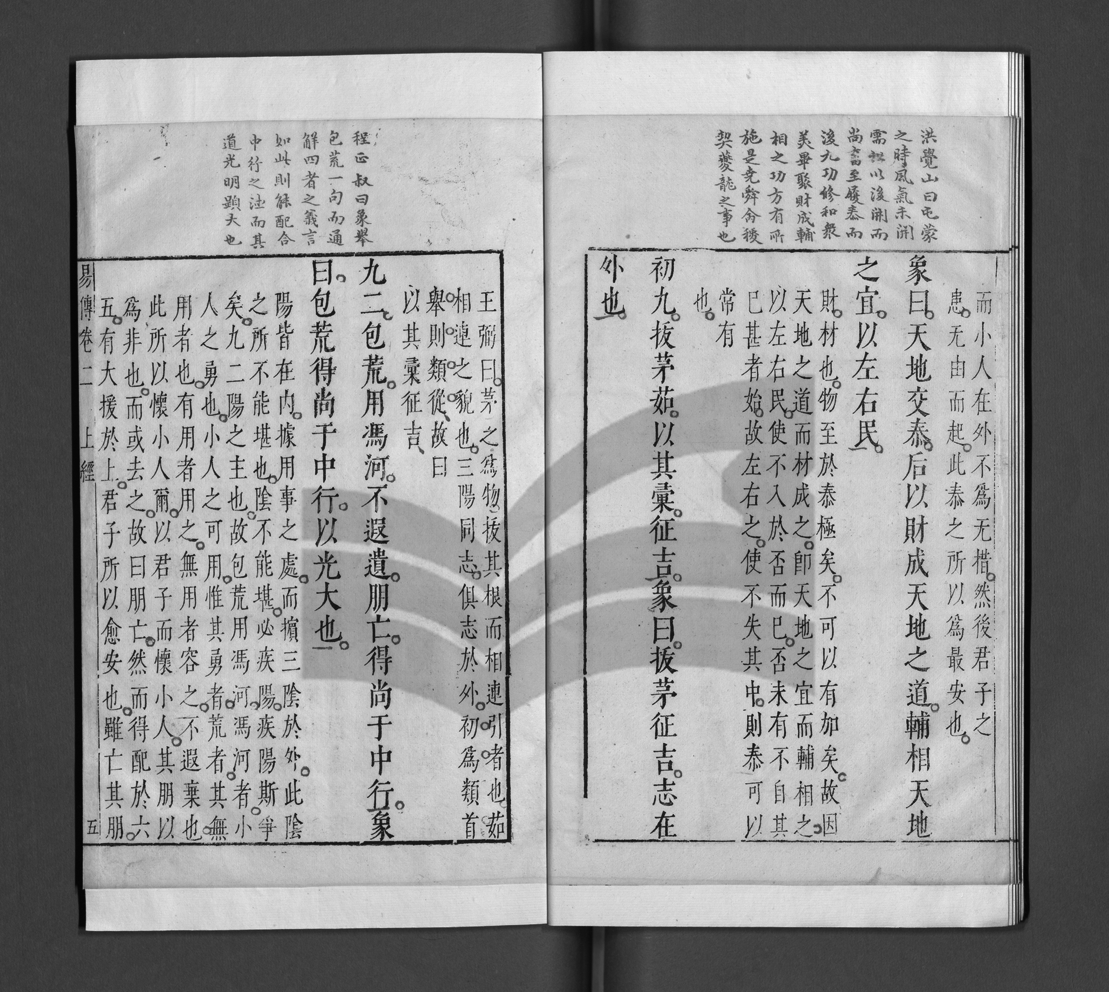 洪覺山曰屯蒙
之時風氣未開
需訟以後開而
尚畜至履泰而
後九功修和衆
美畢聚財成輔
相之功方有所
施是堯舜命稷
契夔龍之事也
而小人在外不爲无措然後君子之
患无由而起此泰之所以爲最安也
象曰天地交泰后以財成天地之道輔相天地
之宜以左右民
財材也物至於泰極矣不可以有加矣故因
天地之道而材成之卽天地之宜而輔相之
以左右民使不入於否而已否未有不自其
已甚者始故左右之使不失其中則泰可以
常有
也
初九拔茅茹以其彙征吉象曰拔茅征吉志在
外也
程正叔曰象舉
包荒一句而通
解四者之義言
如此則能配合
中行之德而其
道光明顯大也
王弼曰茅之爲物拔其根而相連引者也茹
相連之貌也三陽同志俱志於外初爲類首
舉則類從故曰
以其彙征吉
九二包荒用馮河不遐遺朋亡得尚于中行象
曰包荒得尚于中行以光大也
陽皆在內據用事之處而擯三陰於外此陰
之所不能堪也陰不能堪必疾陽疾陽斯爭
矣九二陽之主也故包荒用馮河馮河者小
人之勇也小人之可用惟其勇者荒者其無
用者也有用者用之無用者容之不遐棄也
此所以懷小人爾以君子而懷小人其朋以
爲非也而或去之故曰朋亡然而得配於六
五有大援於上君子所以愈安也雖亡其朋
易傳卷二 上經 五